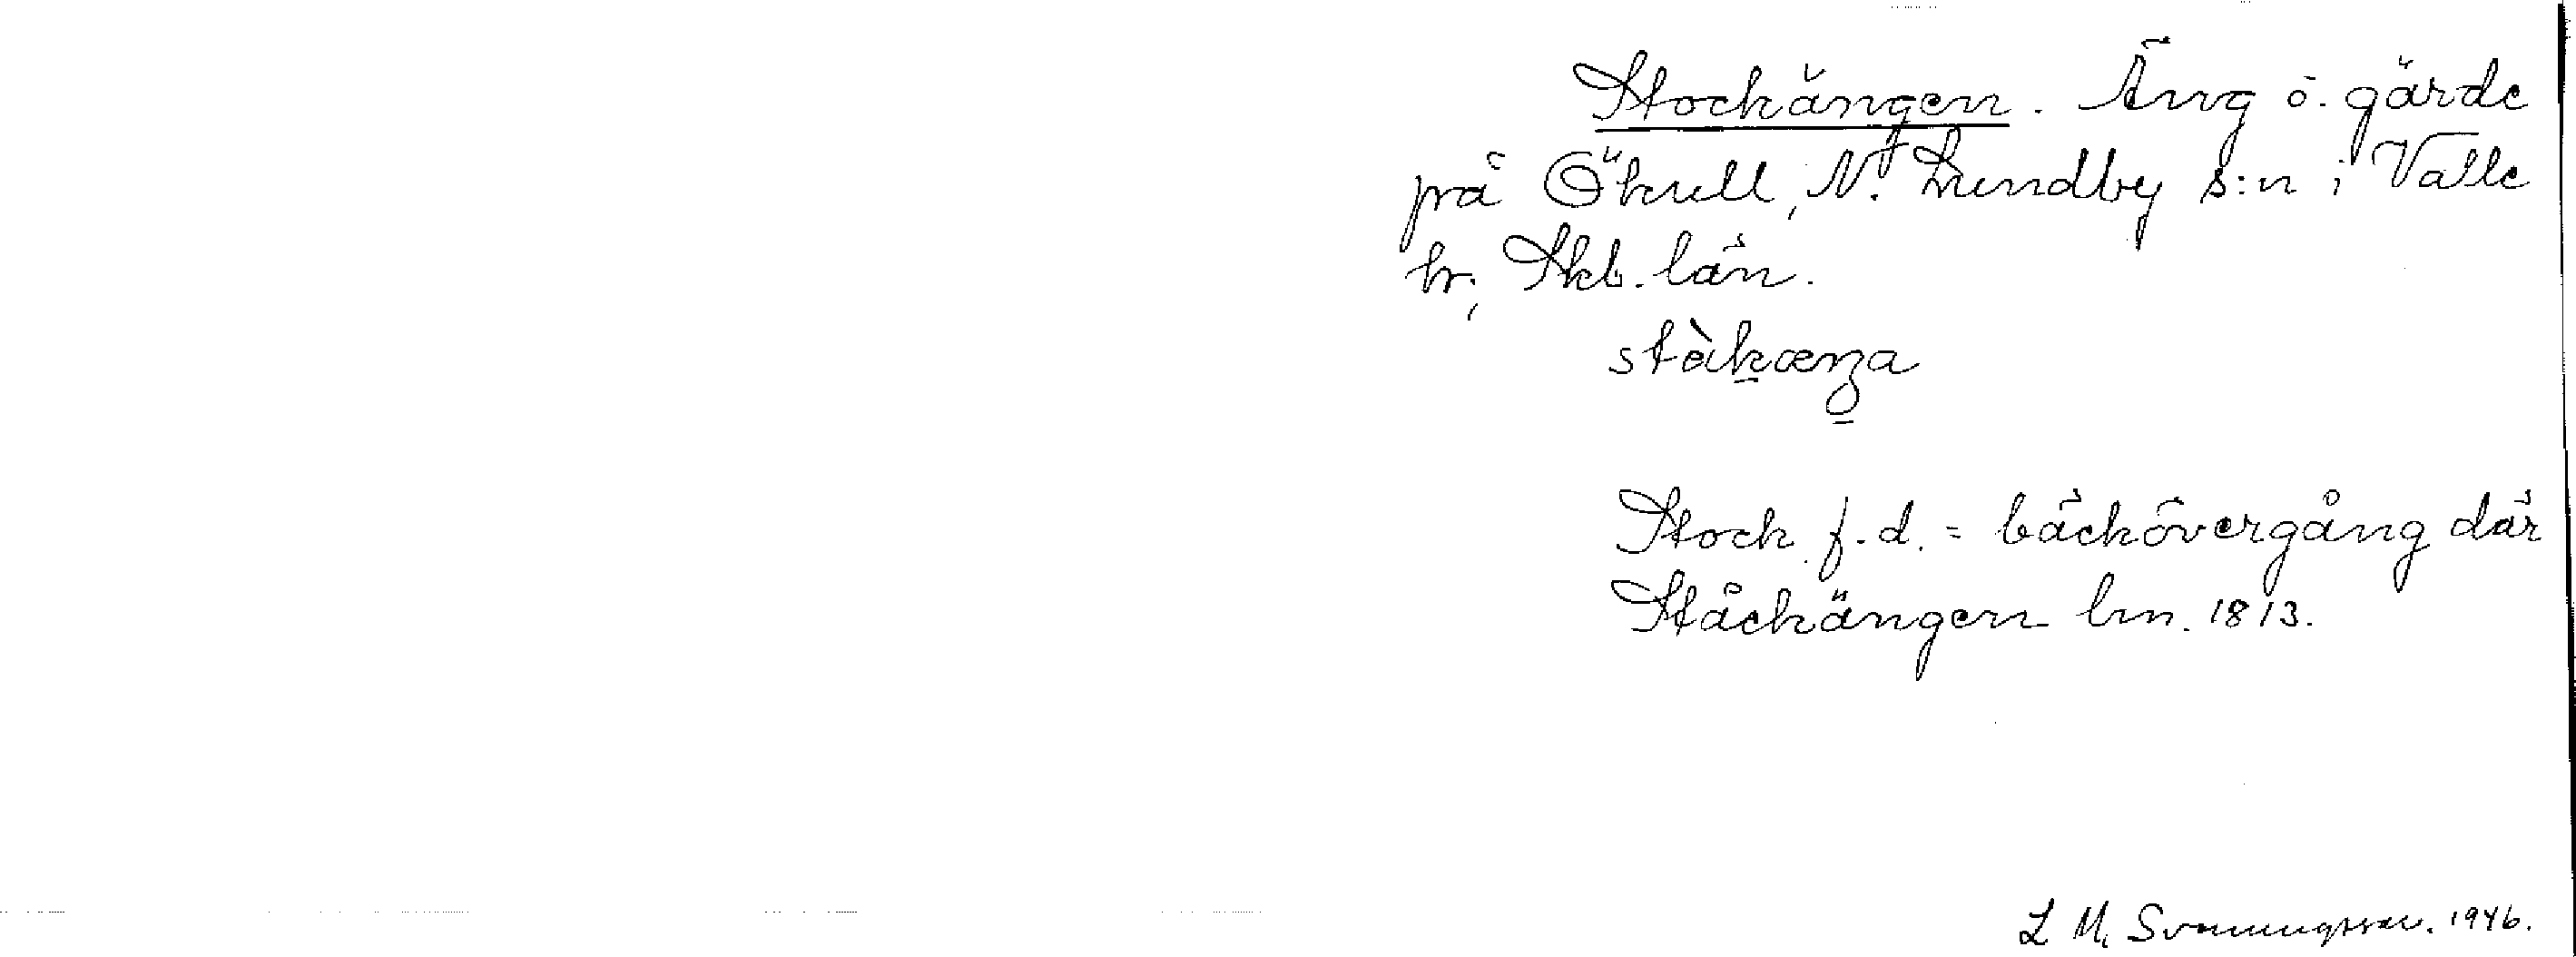 Stockängen. Äng o. gärde
på Ökull, N. Lundby s:n i Valle
hr., Skb. län.
stàkæŋa
Stock f.d. = bäckövergång där
Ståckängen lm. 1813.
L M. Svenungsson. 1946.